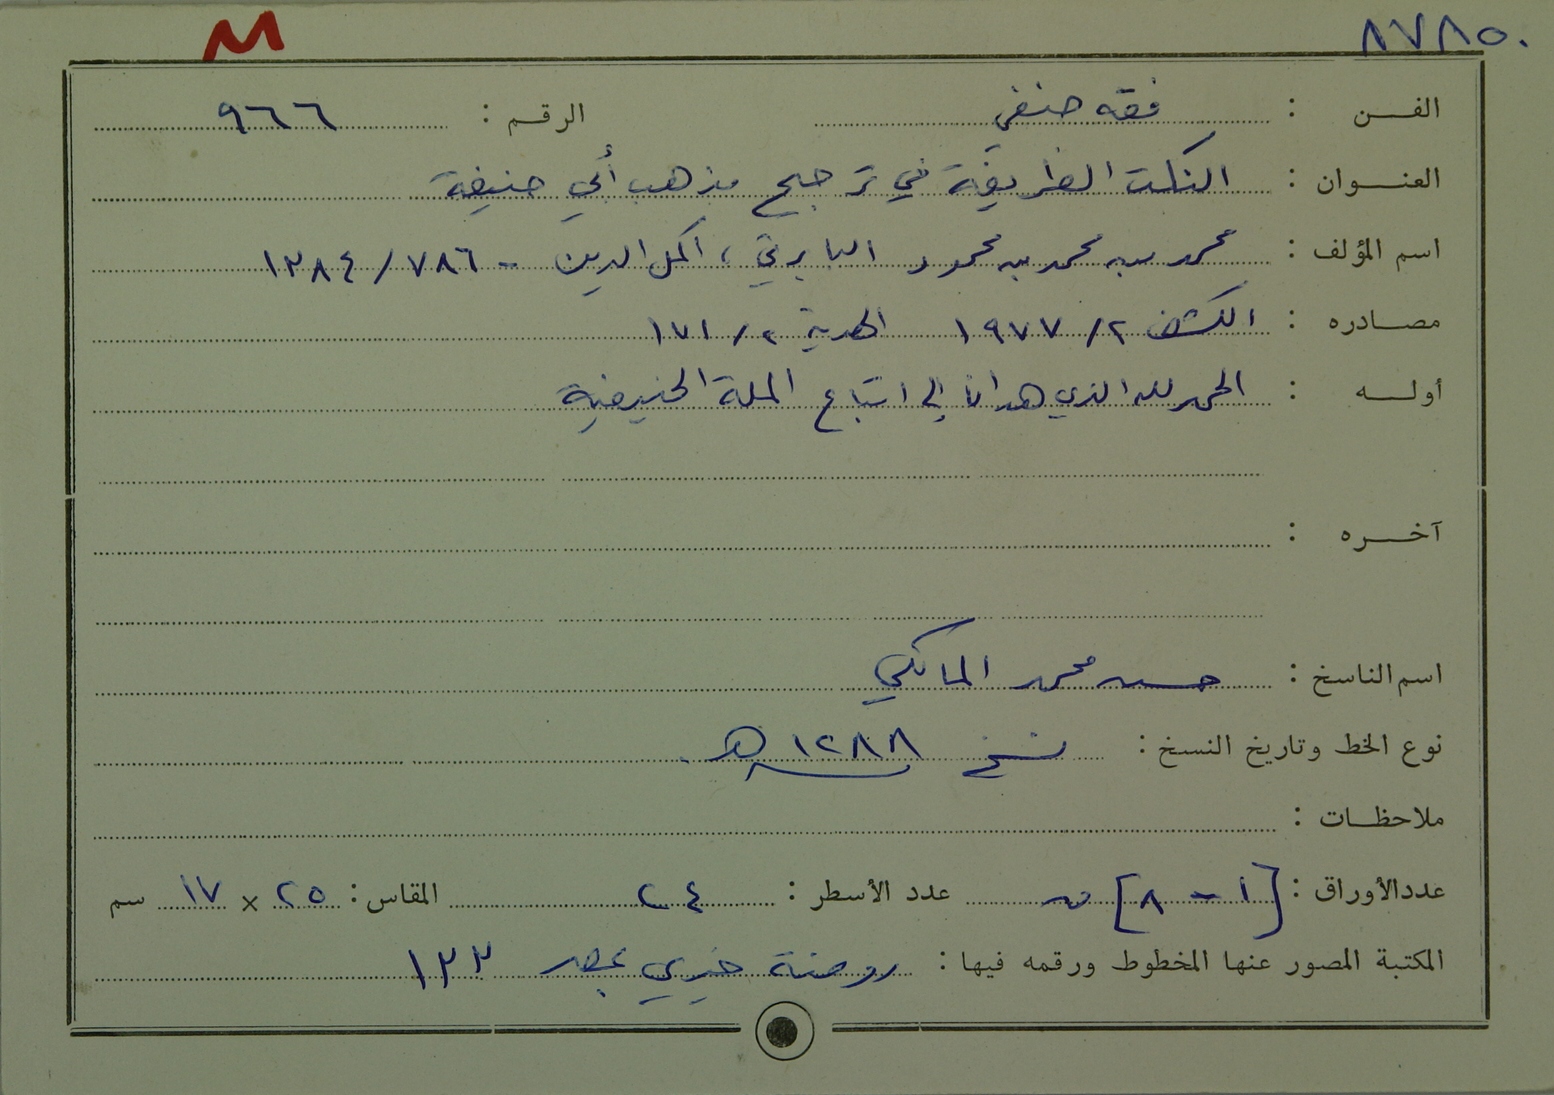 M
٨٧٨٥٠
الفن : فقه حنفي الرقم : ٩٦٦
العنوان : النكت الظريفة في ترجيح مذهب أبي حنيفة
اسم المؤلف : محمد بن محمد بن محمود البابرتي ، أكمل الدين - ٧٨٦ / ١٣٨٤
مصادره : الكشف ٢ / ١٩٧٧ الهدية ٢ / ١٧١
أوله : الحمد لله الذي هدانا إلى اتباع الملة الحنيفية
آخره :
اسم الناسخ : حسن محمد المالكي
نوع الخط وتاريخ النسخ : نسخ ١٢٨٨ هـ
ملاحظات :
عدد الأوراق : [١ - ٨] ق عدد الأسطر : ٢٤ المقاس : ٢٥ × ١٧ سم
المكتبة المصور عنها المخطوط ورقمه فيها : روضة خيري بمصر ١٣٣